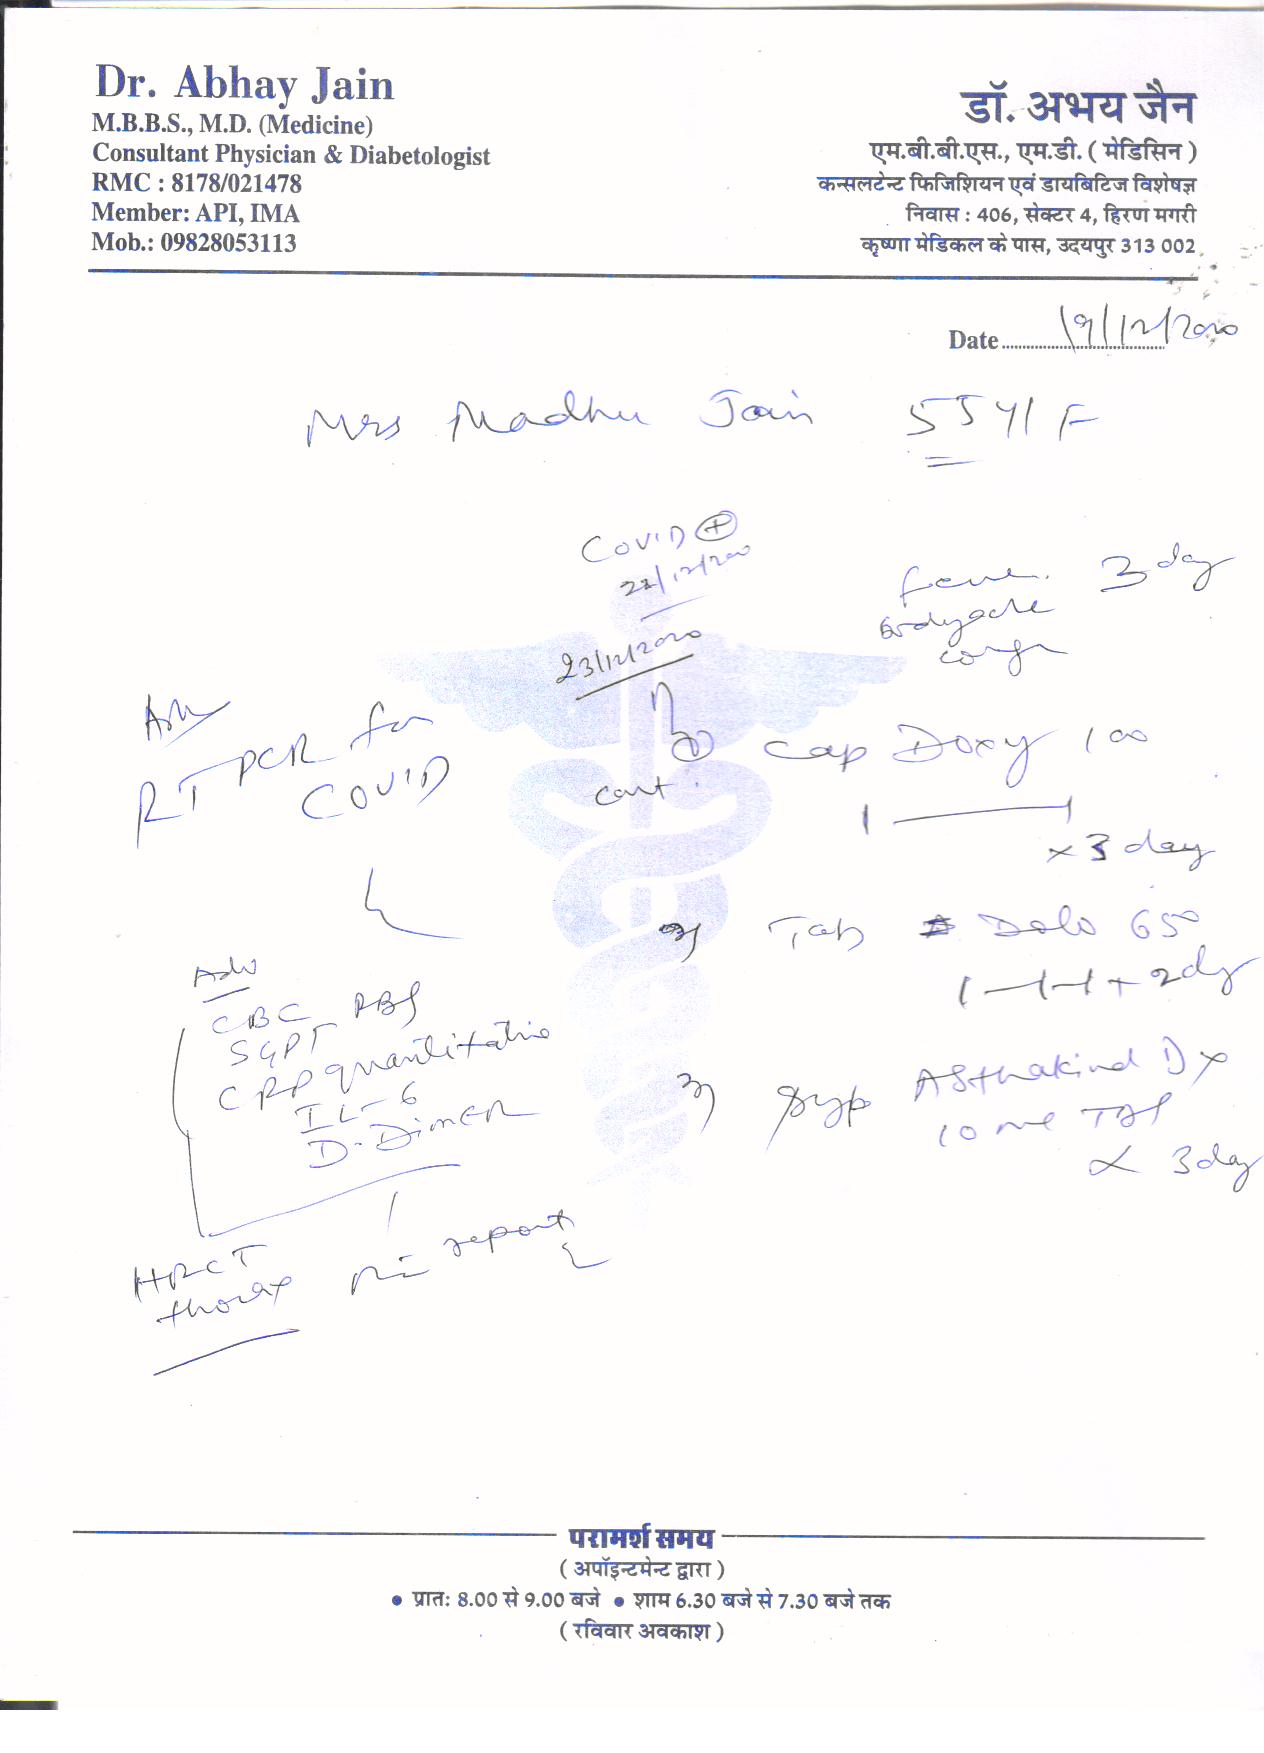 Dr. Abhay Jain
M.B.B.S., M.D. (Medicine)
Consultant Physician & Diabetologist
RMC : 8178/021478
Member: API, IMA
Mob.: 09828053113
डॉ. अभय जैन
एम.बी.बी.एस., एम.डी. ( मेडिसिन )
कन्सलटेन्ट फिजिशियन एवं डायबिटिज विशेषज्ञ
निवास : 406, सेक्टर 4, हिरण मगरी
कृष्णा मेडिकल के पास, उदयपुर 313 002
Date 19/12/2020
Mrs Madhu Jain 55 Y/F
COVID +
22/12/2020
23/12/2020
fever 3 day
Bodyache
cough
Adv
RT PCR for
COVID
cont.
Cap Doxy 100
1 — 1
x 3 day
2) Tab Dolo 650
1—1—1 + 2 dy
3) Syp Asthakind Dx
10 ml TDS
x 3 day
Adv
CBC RBS
SGPT
CRP quantitative
IL-6
D-Dimer
HRCT
thorax
report
परामर्श समय
( अपॉइन्टमेन्ट द्वारा )
• प्रातः 8.00 से 9.00 बजे • शाम 6.30 बजे से 7.30 बजे तक
( रविवार अवकाश )